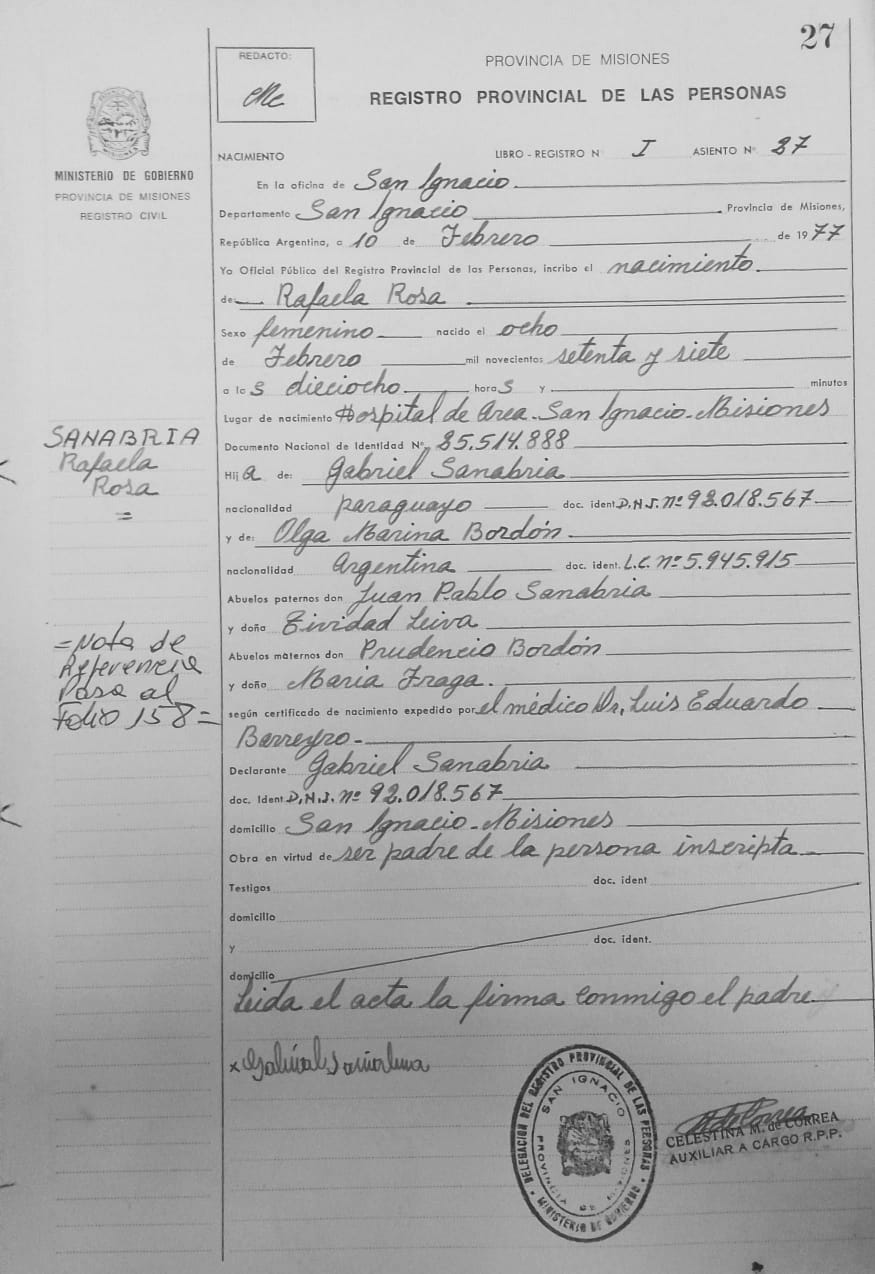 27
REDACTO:
PROVINCIA DE MISIONES
REGISTRO PROVINCIAL DE LAS PERSONAS
MINISTERIO DE GOBIERNO
PROVINCIA DE MISIONES
REGISTRO CIVIL
NACIMIENTO LIBRO - REGISTRO N I ASIENTO Nº 37
En la oficina de San Ignacio
Departamento San Ignacio Provincia de Misiones,
República Argentina, a 10 de Febrero de 1977
Yo Oficial Público del Registro Provincial de las Personas, incribo el nacimiento
de: Rafaela Rosa
Sexo femenino nacido el ocho
de Febrero mil novecientos setenta y siete
a las dieciocho horas y minutos
Lugar de nacimiento Hospital de Area - San Ignacio - Misiones
Documento Nacional de Identidad Nº 25.514.888
Hija de: Gabriel Sanabria
nacionalidad paraguayo doc. ident D.N.I. nº 92.018.567
y de: Olga Marina Bordón
nacionalidad Argentina doc. ident. L.C. nº 5.945.915
Abuelos paternos don Juan Pablo Sanabria
y doña Leiva
Abuelos maternos don Prudencio Bordón
y doña Maria Fraga.
según certificado de nacimiento expedido por el médico Dr. Luis Eduardo
Barreyro -
Declarante Gabriel Sanabria
doc. Ident D.N.I. nº 92.018.567
domicilio San Ignacio - Misiones
Obra en virtud de ser padre de la persona inscripta
Testigos doc. ident
domicilio
y doc. ident.
domicilio
Leida el acta la firma conmigo el padre
SANABRIA
Rafaela
Rosa
=
= Nota de
Referencia
Pasa al
Folio 158 =
DELEGACION DEL REGISTRO PROVINCIAL DE LAS PERSONAS
MINISTERIO DE GOBIERNO
SAN IGNACIO
PROVINCIA DE MISIONES
CELESTINA M. de CORREA
AUXILIAR A CARGO R.P.P.